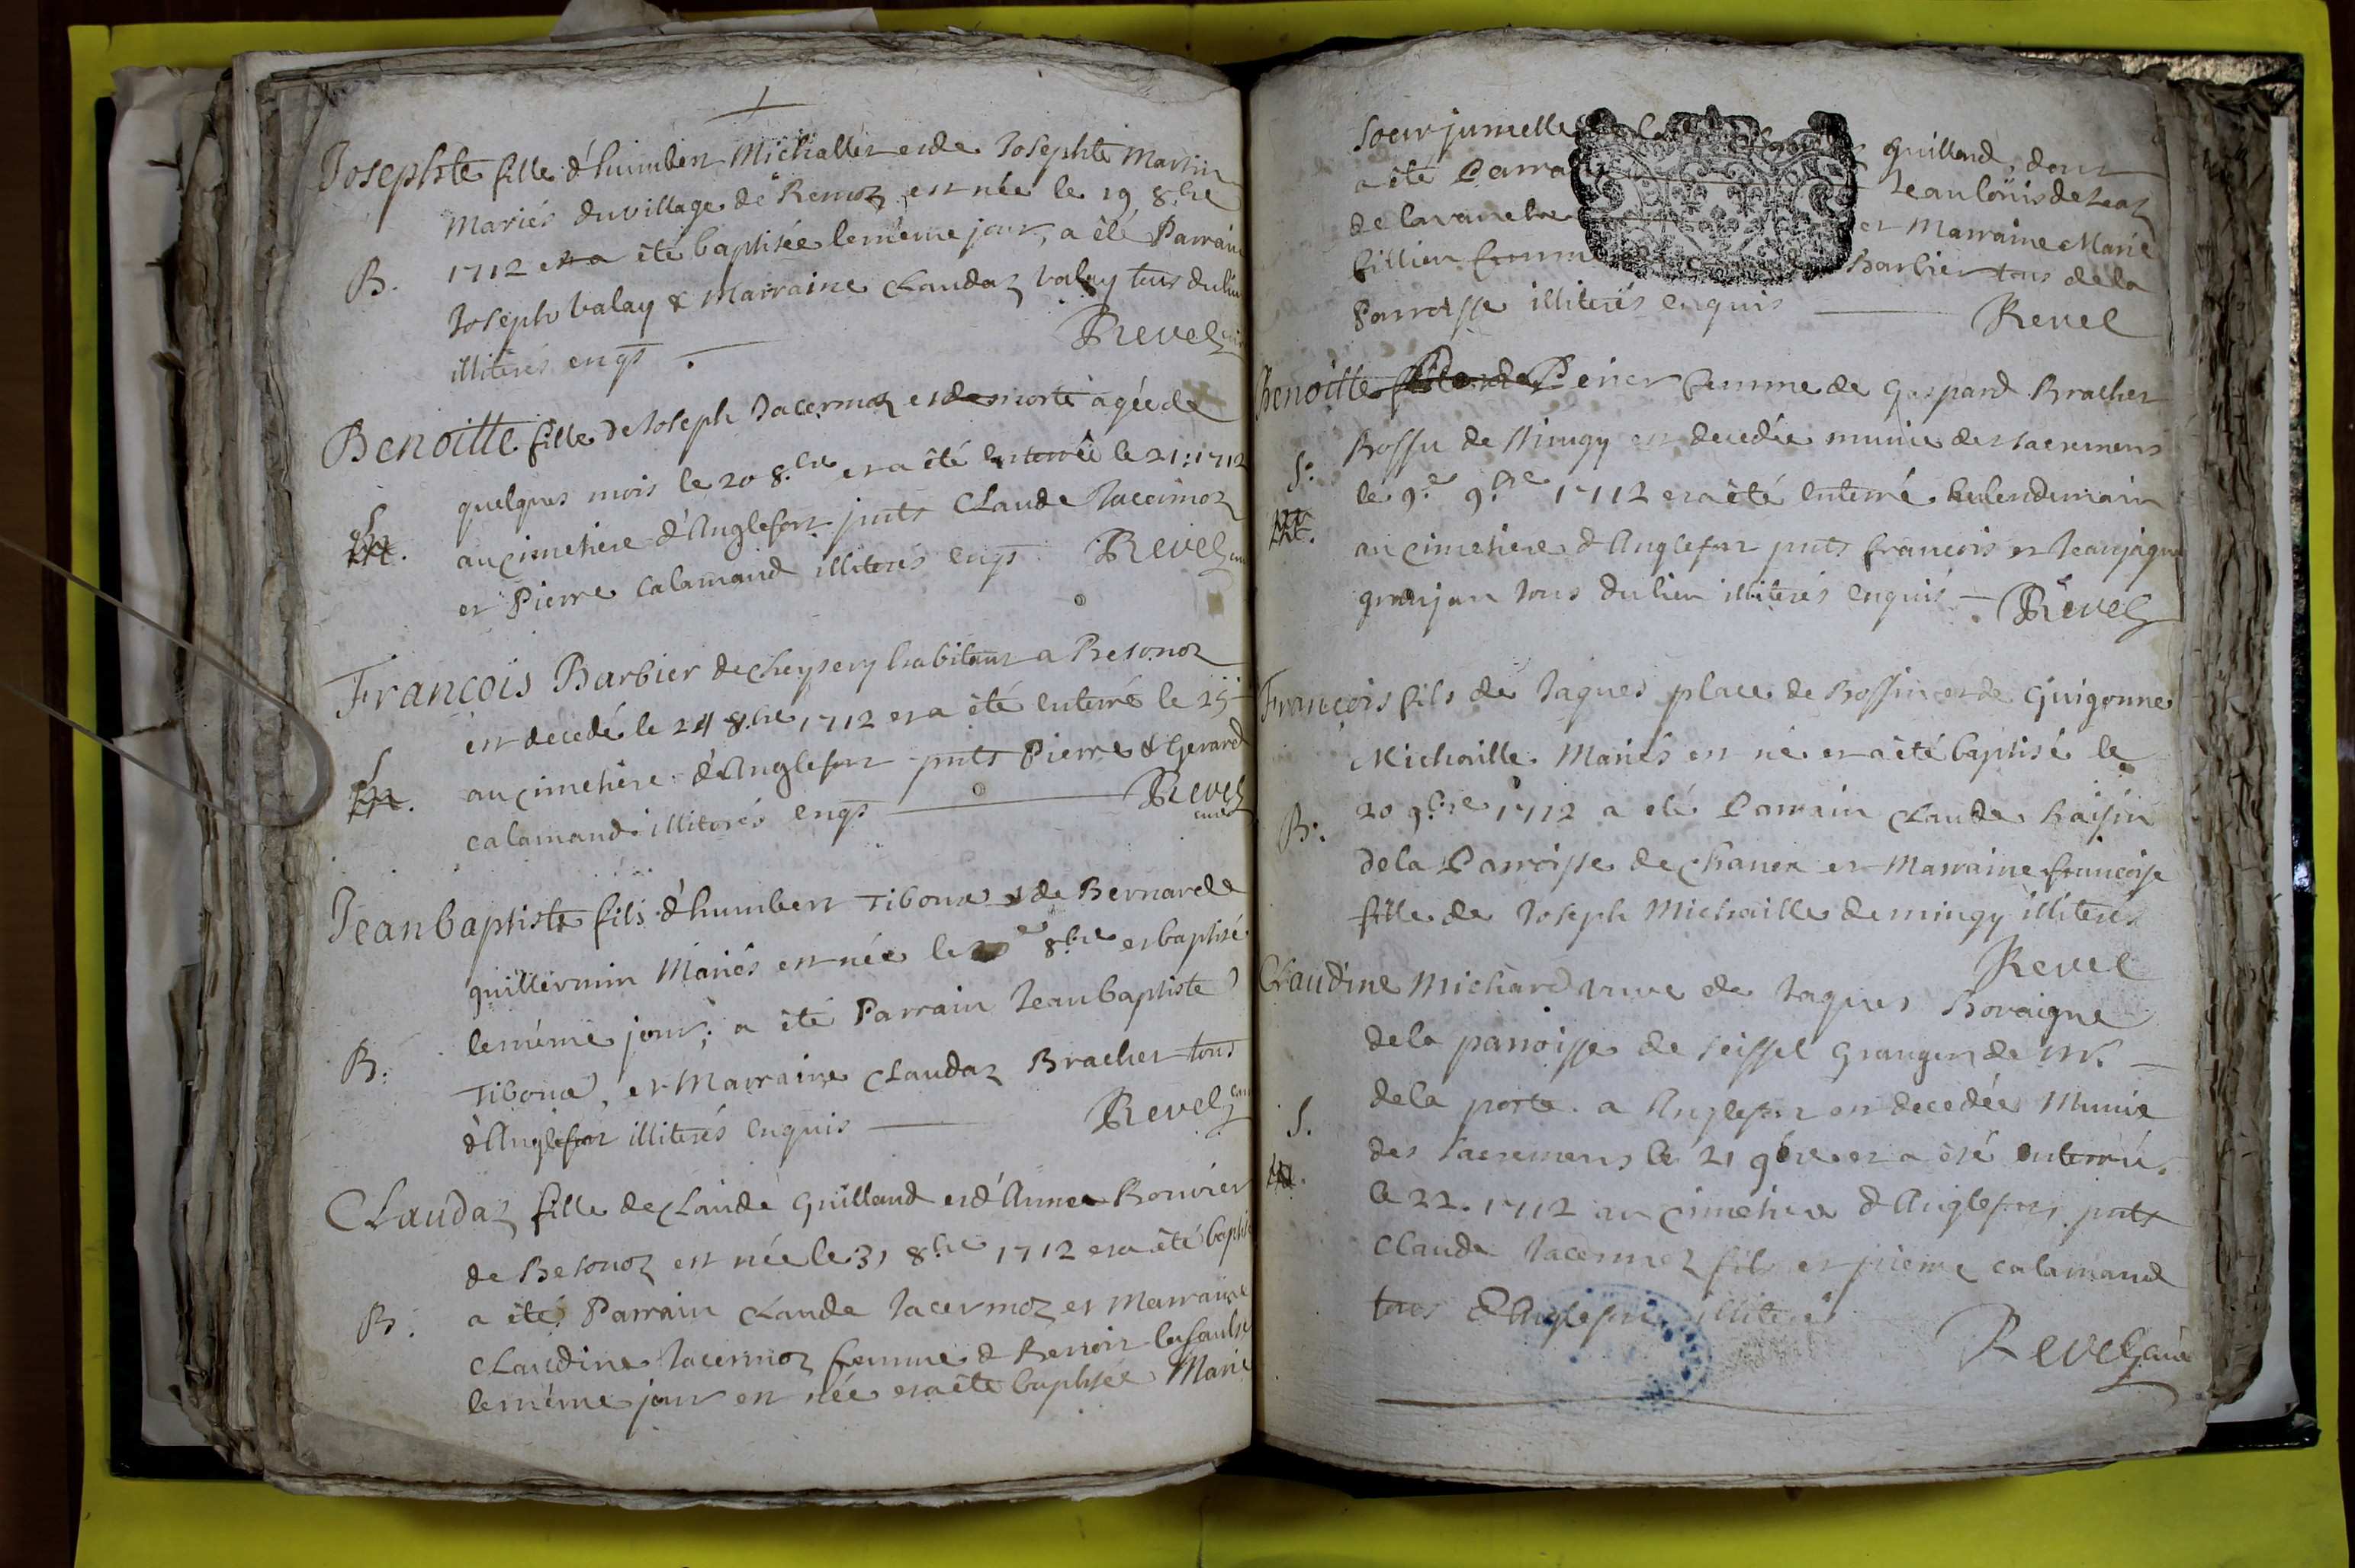 Josephte fille d'humbert Michallet et de Josephte Martin
Mariés du village de Remoz est née le 19 8.bre
B. 1712 et a été baptisée le méme jour, a êté Parrain
Joseph Valay & Marraine Claudaz Valay tous du lieu
illiterés enqs Revel curé
Benoitte fille de Joseph Jacermoz est morte agée de
quelques mois le 20 8.bre et a êté enterrée le 21: 1712
S. au cimetiere d'Anglefort pnts Claude Jacermoz
et Pierre Calamand illiterés enqs Revel curé
François Barbier de Cheysery habitant a Besonoz
est decedé le 24 8.bre 1712 et a êté enterré le 25
S. au cimetiere d'Anglefort pnts Pierre & Gerard
Calamand illiterés enqs Revel
curé
Jean baptiste fils d'humbert Riboux & de Bernarde
guillermin Mariés est née le 8.bre et baptisé
le méme jour; a êté Parrain Jean baptiste
B: Riboux, et Marraine Claudaz Bracher tous
d'Anglefort illiterés enquis Revel curé
Claudaz fille de Claude Guilland et d'Anne Bouvier
de Besonoz est née le 31 8.bre 1712 et a êté baptisée
B. a êté Parrain Claude Jacermoz et Marraine
Claudine Jacermoz femme d Benoit
le méme jour est née et a êté baptisée Marie
Soeur jumelle guilland dont
a êté Parrain Jean loüis de
de Lavanche et Marraine Marie
fillion femme Barbier tous de la
Parroisse illiterés enquis Revel
Benoitte Perier femme de Gaspard Bracher
Bossu de Mingy est decedée munie des sacremens
S: le 9.e 9.bre 1712 et a êté enterré le lendemain
au cimetiere d'Anglefort pnts françois et Jean jaque
granjan tous du lieu illiterés enquis Revel
François fils de Jaques place de Bossin et de Guigonne
Michaille Mariés est né et a êté baptisé le
B: 20 9.bre 1712 a eté Parrain Claude
de la Parroisse de Chanex et Marraine françoise
fille de Joseph Michaille de mingy illiterés
Revel
Claudine Michard vuve de Jaques Bovaigne
de la parroisse de seissel granger de Mr.
de la porte a Anglefort est decedée Munie
S. des sacremens le 21 9bre et a êté enterré
le 22. 1712 au cimetiere d'Anglefort pnts
Claude Jacermoz fils et pierre calamand
tous d'Anglefort illiterés
Revel curé